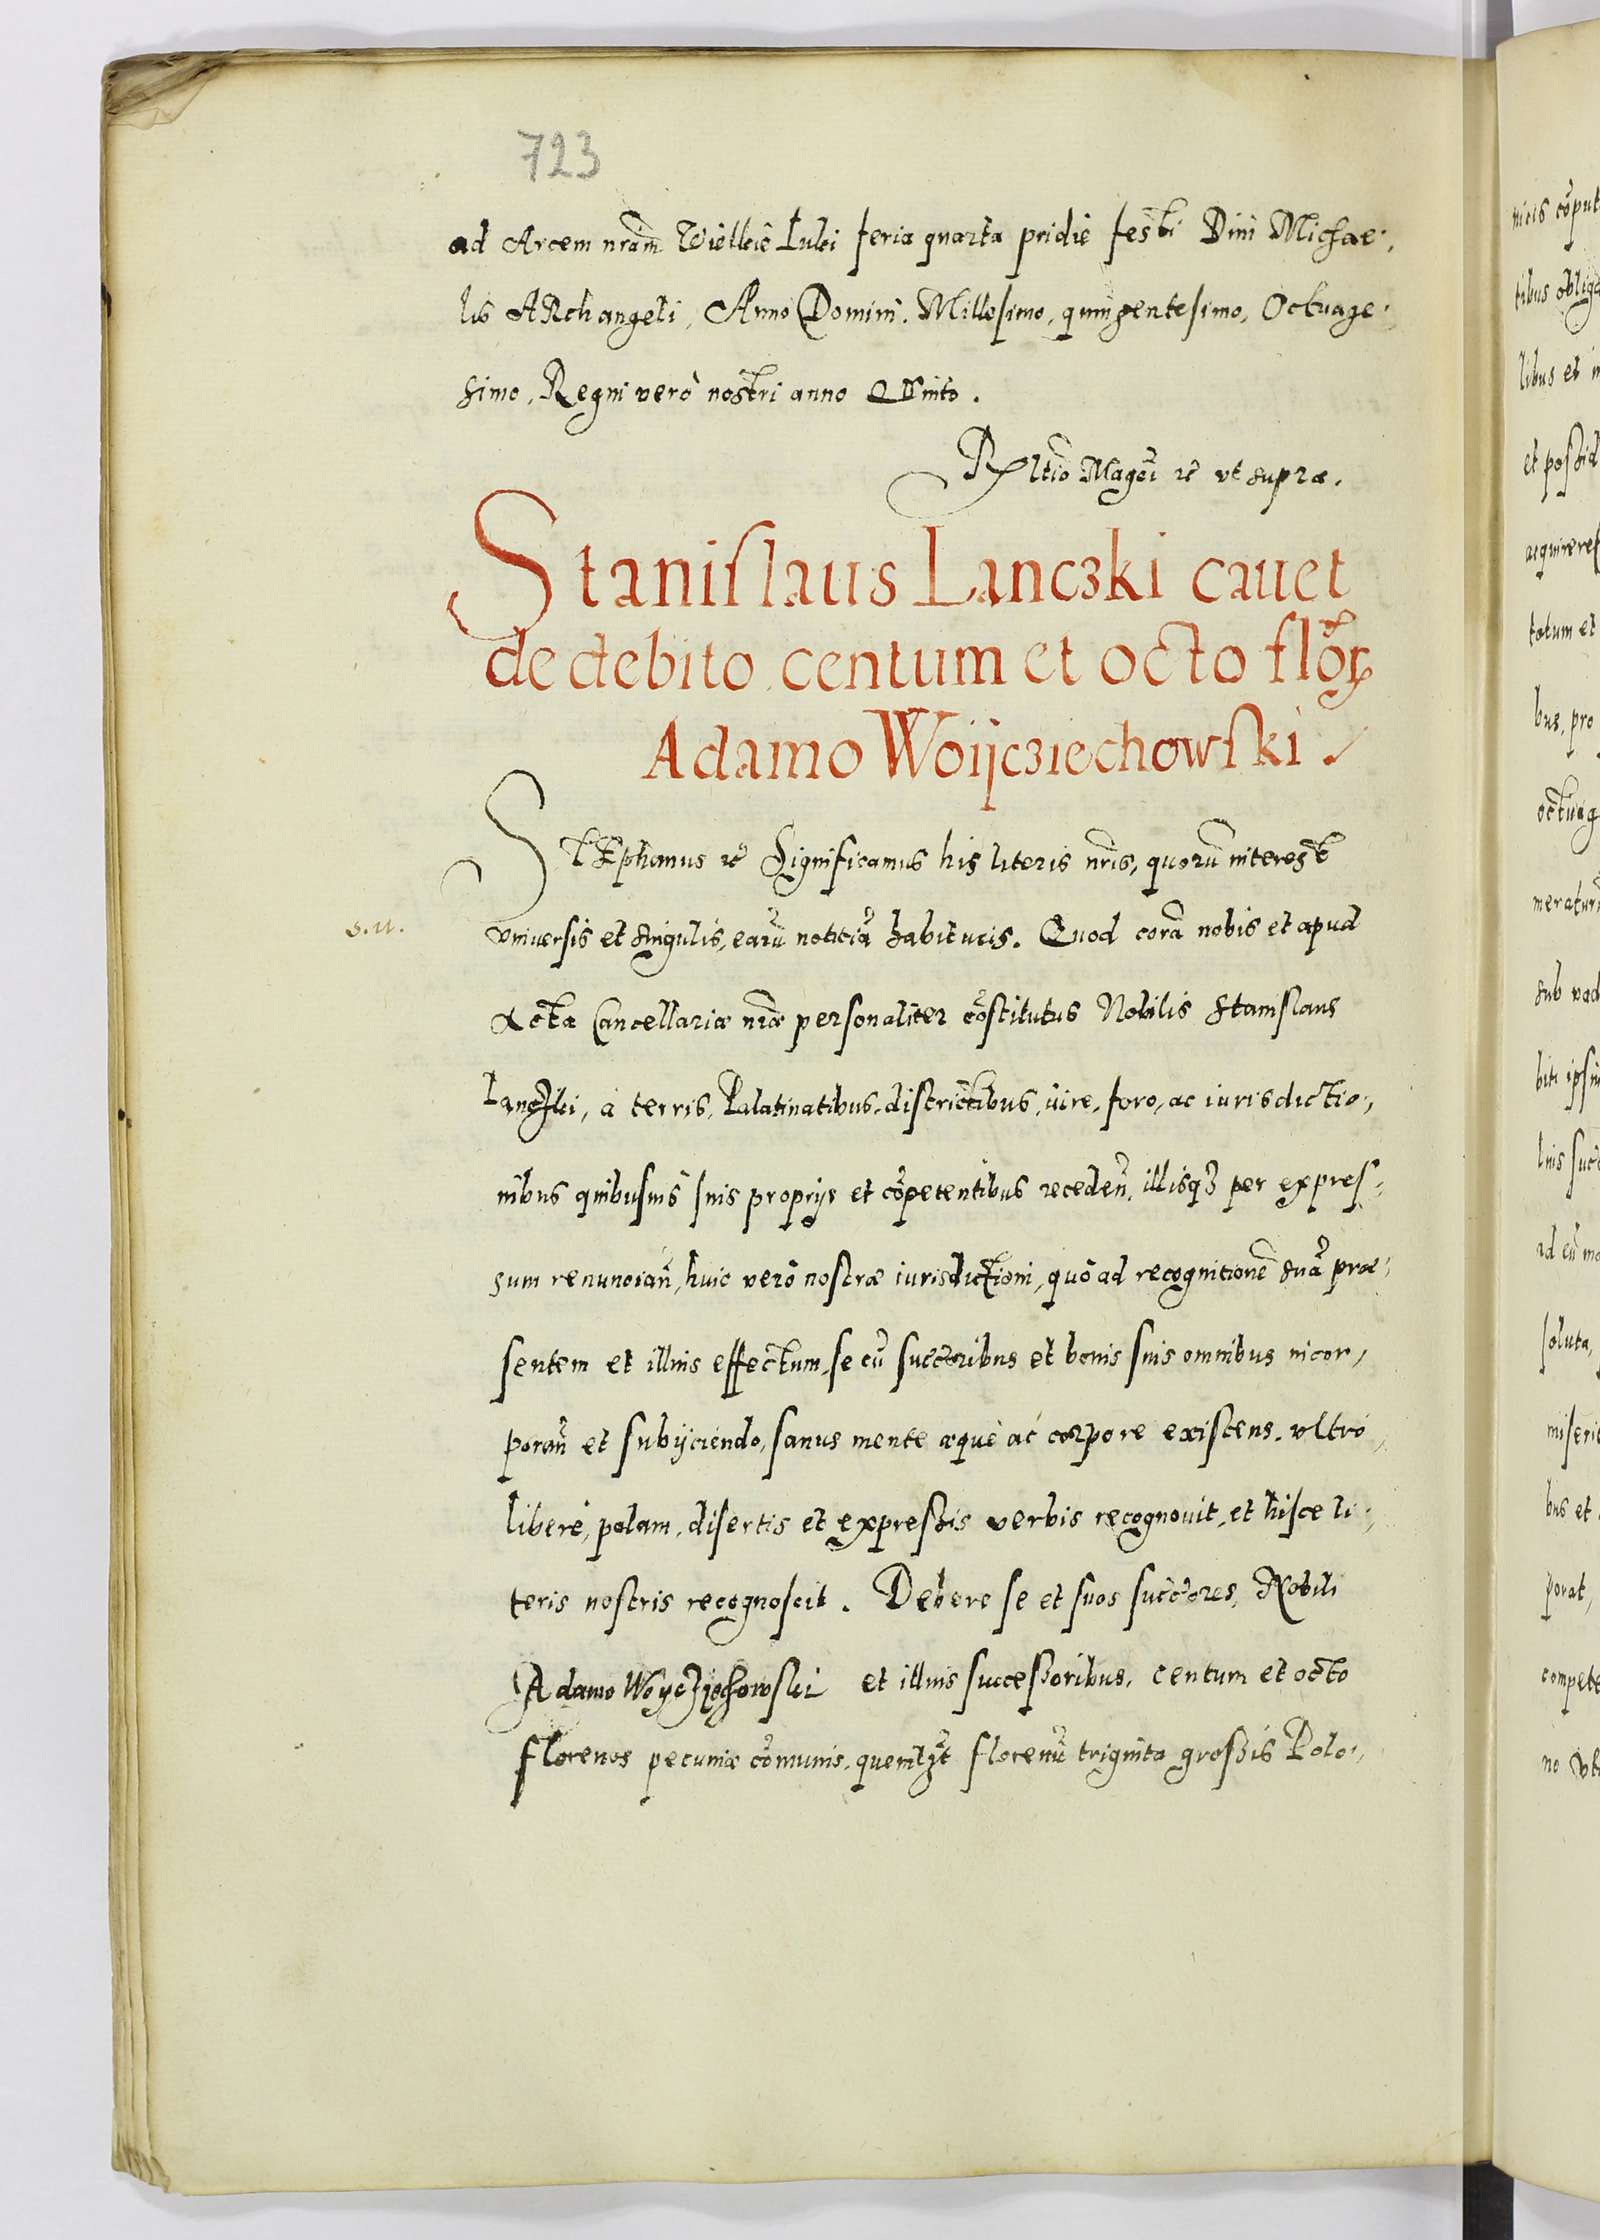 723
ad Arcem nrãm Wielkie Luki feria quarta pridie festi Diui Michae,
lis ARchangeli, Anno Domini. Millesimo, quingentesimo, Octuage,
simo, Regni vero nostri anno QVinto.
Rltio Magci rc vt supra.
Staniſlaus Lanczki cauet
de debito centum et octo florꝝ
Adamo Woijcziechowſki
StEphanus rc Significamus his literis nris, quorũ interest
s. u.
vniuersis et singulis, earũ notitiã habituris. Quod corã nobis et apud
Acta Cancellariæ nræ personaliter cõstitutus Nobilis Stanislaus
Lanczki, à terris, Palatinatibus, districtibus, iure, foro, ac iurisdictio,
nibus quibusuis suis proprijs et cõpetentibus receden̄, illisqꝫ per expres,
sum renuncian̄, huic verò nostræ iurisdictioni, quò ad recognitionẽ suã præ,
sentem et illius effectum, se cũ succoribus et bonis suis omnibus incor,
poran̄ et subijciendo, sanus mente æquè ac corpore existens, vltrò,
liberè, palam, disertis et expreßis verbis recognouit, et hisce li,
teris nostris recognoscit. Debere se et suos succores, Nobili
Adamo Woyczyechowski et illius succeßoribus, centum et octo
florenos pecuniæ cõmunis, quemlꝫt florenũ triginta großis Polo,
nicis cõput
tibus obliga
libus et in
et poßid
acquireret
totum et
bus, pro
octuag
meraturũ
sub vad
biti ipsiu
lius succ
ad eũ mo
soluta,
bus et
porat,
compete
no vt